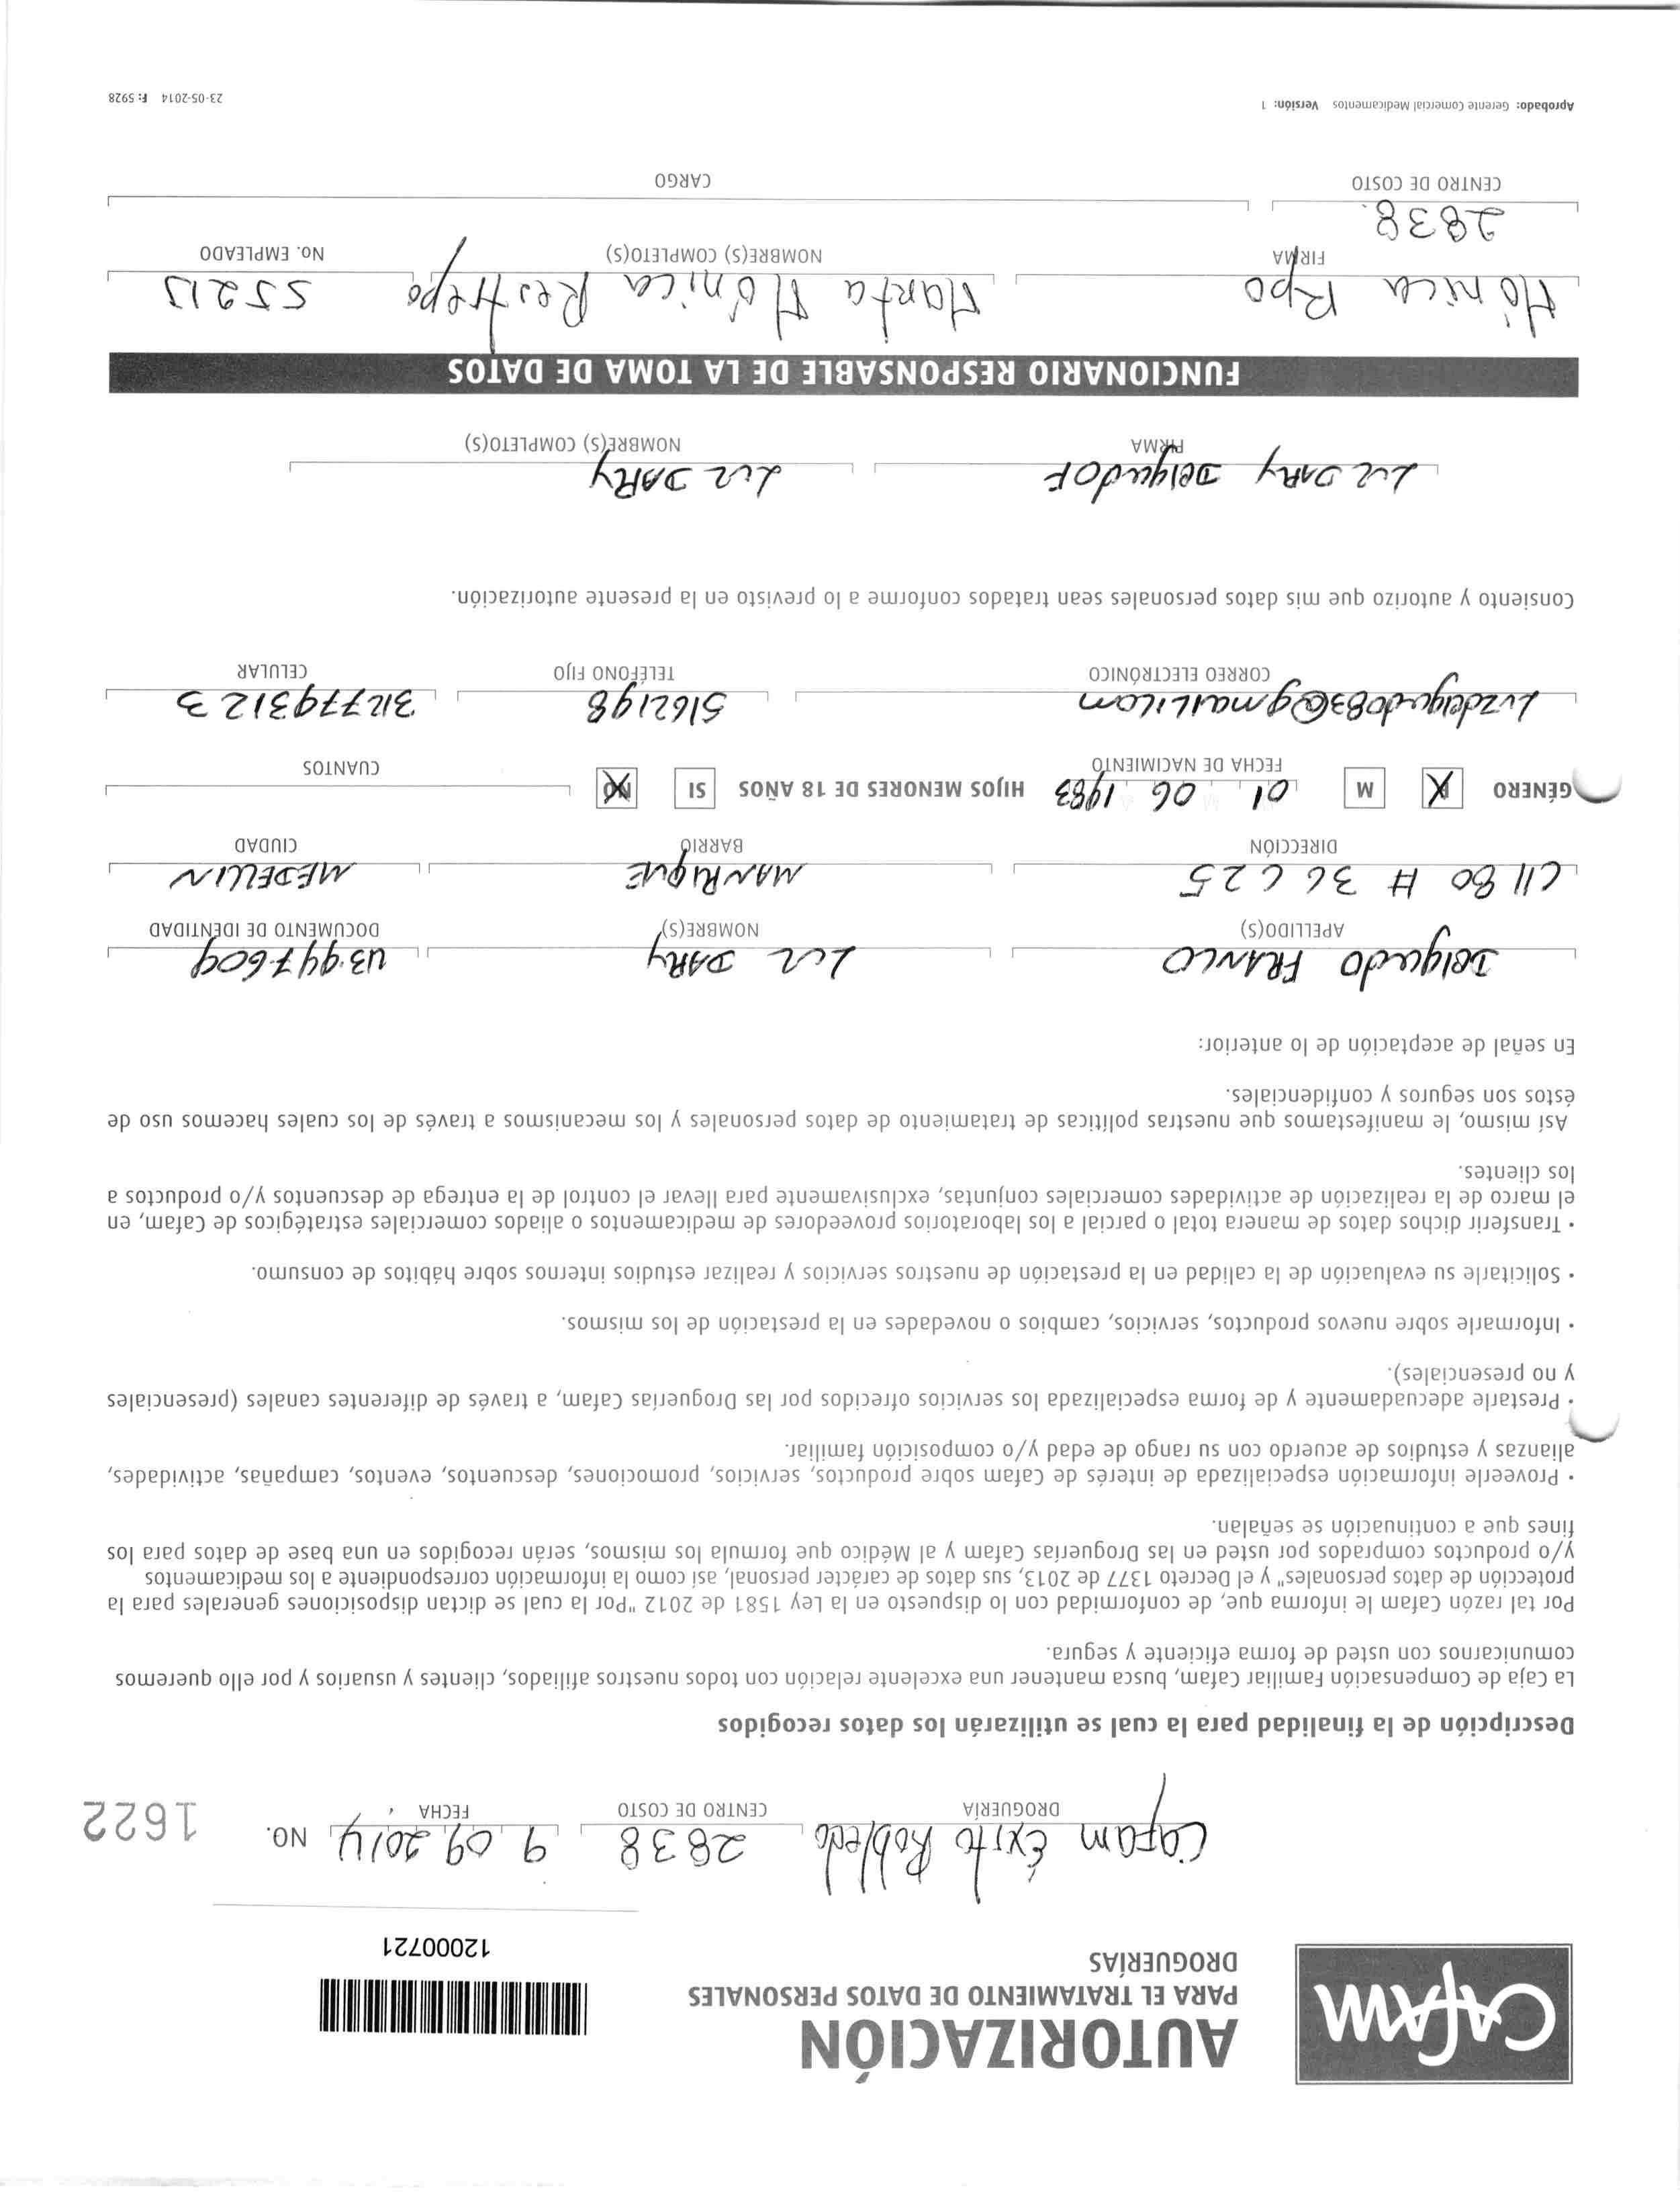 Cafam
AUTORIZACIÓN
PARA EL TRATAMIENTO DE DATOS PERSONALES
DROGUERÍAS
12000721
Cafam Éxito Robledo 2838 9 09 2014 NO. 1622
DROGUERÍA CENTRO DE COSTO FECHA
Descripción de la finalidad para la cual se utilizarán los datos recogidos
La Caja de Compensación Familiar Cafam, busca mantener una excelente relación con todos nuestros afiliados, clientes y usuarios y por ello queremos
comunicarnos con usted de forma eficiente y segura.
Por tal razón Cafam le informa que, de conformidad con lo dispuesto en la Ley 1581 de 2012 "Por la cual se dictan disposiciones generales para la
protección de datos personales" y el Decreto 1377 de 2013, sus datos de carácter personal, así como la información correspondiente a los medicamentos
y/o productos comprados por usted en las Droguerías Cafam y al Médico que formula los mismos, serán recogidos en una base de datos para los
fines que a continuación se señalan.
• Proveerle información especializada de interés de Cafam sobre productos, servicios, promociones, descuentos, eventos, campañas, actividades,
alianzas y estudios de acuerdo con su rango de edad y/o composición familiar.
• Prestarle adecuadamente y de forma especializada los servicios ofrecidos por las Droguerías Cafam, a través de diferentes canales (presenciales
y no presenciales).
• Informarle sobre nuevos productos, servicios, cambios o novedades en la prestación de los mismos.
• Solicitarle su evaluación de la calidad en la prestación de nuestros servicios y realizar estudios internos sobre hábitos de consumo.
• Transferir dichos datos de manera total o parcial a los laboratorios proveedores de medicamentos o aliados comerciales estratégicos de Cafam, en
el marco de la realización de actividades comerciales conjuntas, exclusivamente para llevar el control de la entrega de descuentos y/o productos a
los clientes.
Así mismo, le manifestamos que nuestras políticas de tratamiento de datos personales y los mecanismos a través de los cuales hacemos uso de
éstos son seguros y confidenciales.
En señal de aceptación de lo anterior:
Delgado FRANCO Luz DARY 43.997609
APELLIDO(S) NOMBRE(S) DOCUMENTO DE IDENTIDAD
Cll 80 # 36 C 25 MANRIQUE MEDELLIN
DIRECCIÓN BARRIO CIUDAD
GÉNERO F M 01 06 1983 HIJOS MENORES DE 18 AÑOS SI NO
FECHA DE NACIMIENTO CUANTOS
Luzdelgado083@gmail.com 5162198 3127793123
CORREO ELECTRÓNICO TELÉFONO FIJO CELULAR
Consiento y autorizo que mis datos personales sean tratados conforme a lo previsto en la presente autorización.
Luz DARY Delgado F Luz DARY
FIRMA NOMBRE(S) COMPLETO(S)
FUNCIONARIO RESPONSABLE DE LA TOMA DE DATOS
Mónica Rpo Marta Mónica Restrepo 55213
FIRMA NOMBRE(S) COMPLETO(S) No. EMPLEADO
2838
CENTRO DE COSTO CARGO
Aprobado: Gerente Comercial Medicamentos Versión: 1 23-05-2014 F: 5928